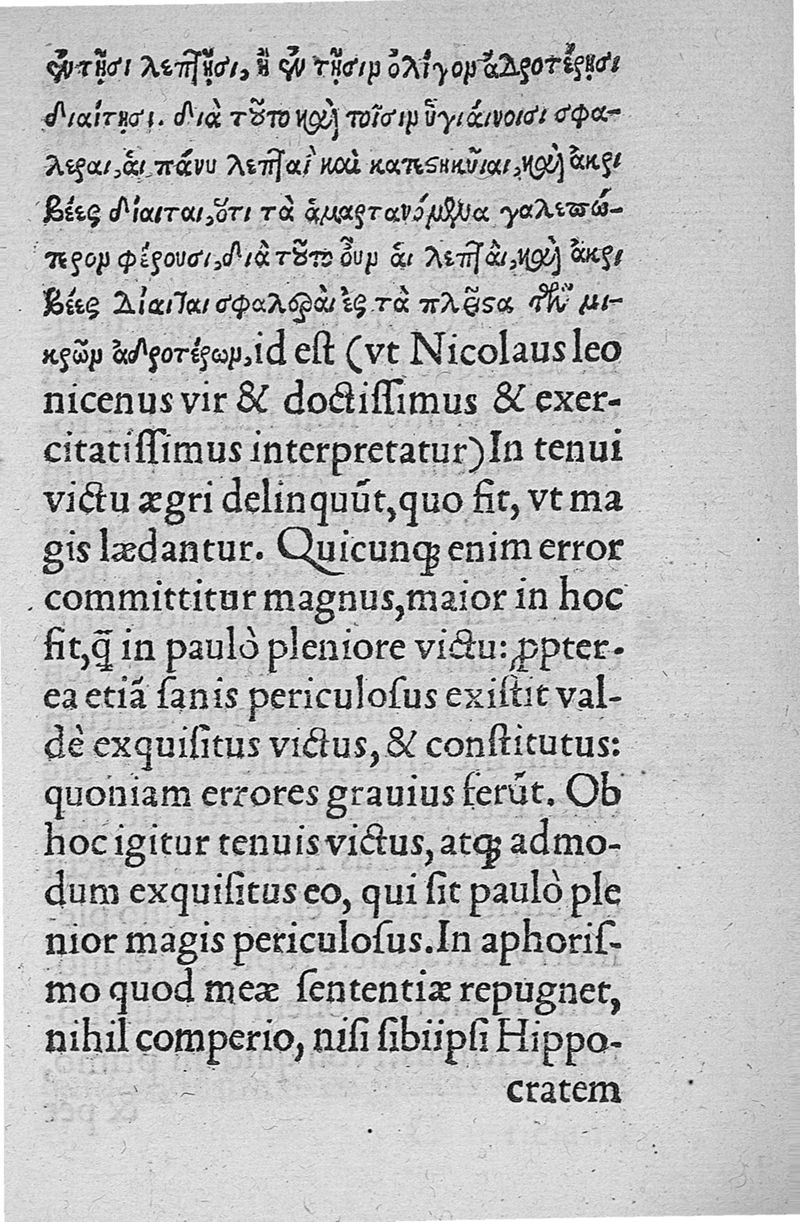 ἐν τῇσι λεπτῇσι, ἢ ἐν τῇσιν ὀλίγον ἁδροτέρῃσι
διαίτῃσι. διὰ τοῦτο καὶ τοῖσιν ὑγιάινοισι σφα-
λεραι, ἁι πάνυ λεπταὶ καὶ κατεστηκυῖαι, καὶ ἀκρι
βέες δίαιται, ὅτι τὰ ἁμαρτανόμενα γαλεπώ-
τερον φέρουσι, διὰ τοῦτο οὖν ἁι λεπταὶ, καὶ ἀκρι
βέες δίαιται σφαλεραὶ ἐς τὰ πλεῖστα τῶν μι-
κρῶν ἁδροτέρων, id eſt (vt Nicolaus leo
nicenus vir & doctiſſimus & exer-
citatiſſimus interpretatur) In tenui
victu ægri delinquũt, quo fit, vt ma
gis lædantur. Quicunqꝫ enim error
committitur magnus, maior in hoc
fit, q̃ in paulò pleniore victu: ꝓpter-
ea etiã ſanis periculoſus exiſtit val-
dè exquiſitus victus, & conſtitutus:
quoniam errores grauius ferũt. Ob
hoc igitur tenuis victus, atqꝫ admo-
dum exquiſitus eo, qui ſit paulò ple
nior magis periculoſus. In aphoriſ-
mo quod meæ ſententiæ repugnet,
nihil comperio, niſi ſibiipſi Hippo-
cratem